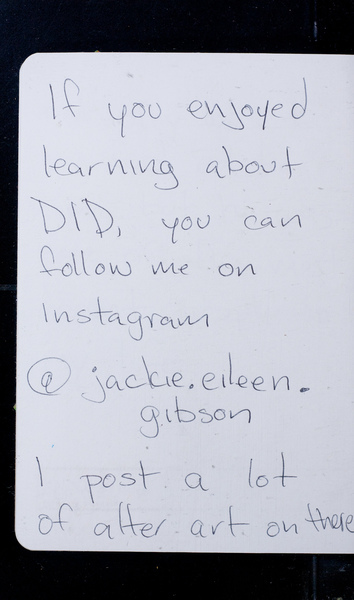 If you enjoyed
learning about
DID, you can
follow me on
Instagram
@ jackie.eileen.
gibson
I post a lot
of alter art on there